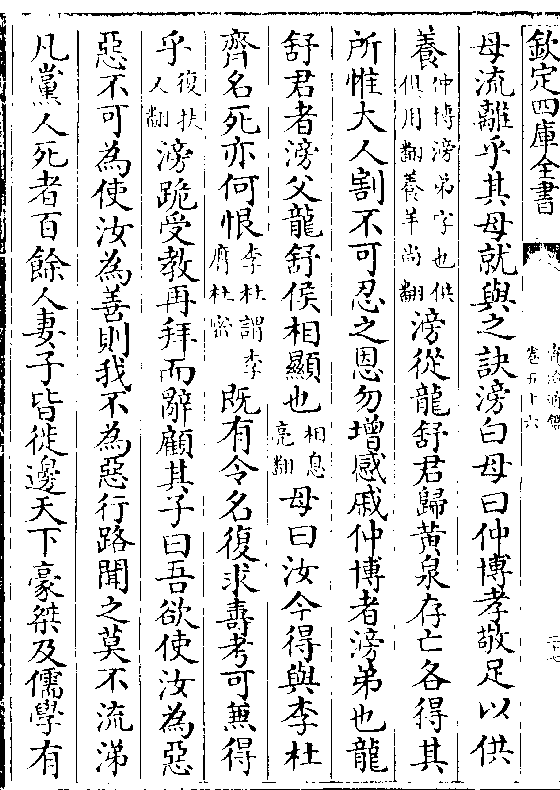 欽定四庫全書
資治通鑑
卷五十六
母流離乎其母就與之訣滂白母曰仲博孝敬足以供
養仲博滂弟字也供俱用翻養羊尚翻滂從龍舒君歸黃泉存亡各得其
所惟大人割不可忍之恩勿增感戚仲博者滂弟也龍
舒君者滂父龍舒侯相顯也相息亮翻母曰汝今得與李杜
齊名死亦何恨李杜謂李膺杜密既有令名復求壽考可兼得
乎復扶又翻滂跪受教再拜而辭顧其子曰吾欲使汝為惡
惡不可為使汝為善則我不為惡行路聞之莫不流涕
凡黨人死者百餘人妻子皆徙邊天下豪桀及儒學有